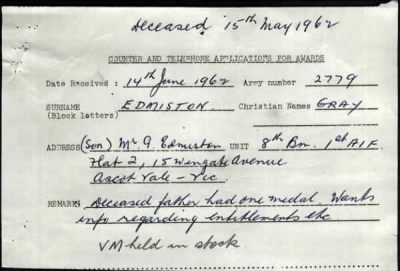 Deceased 15th May 1962
COUNTER AND TELEPHONE APPLICATIONS FOR AWARDS
Date Received : 14th June 1962 Army number 2779
SURNAME EDMISTON Christian Names GRAY
(Block letters)
ADDRESS (Son) Mr G Edmiston UNIT 8th Bn. 1st A.I.F.
Flat 2, 15 Wingate Avenue
Ascot Vale - Vic.
REMARKS Deceased father had one medal. Wants
info regarding entitlements etc
VM held in stock